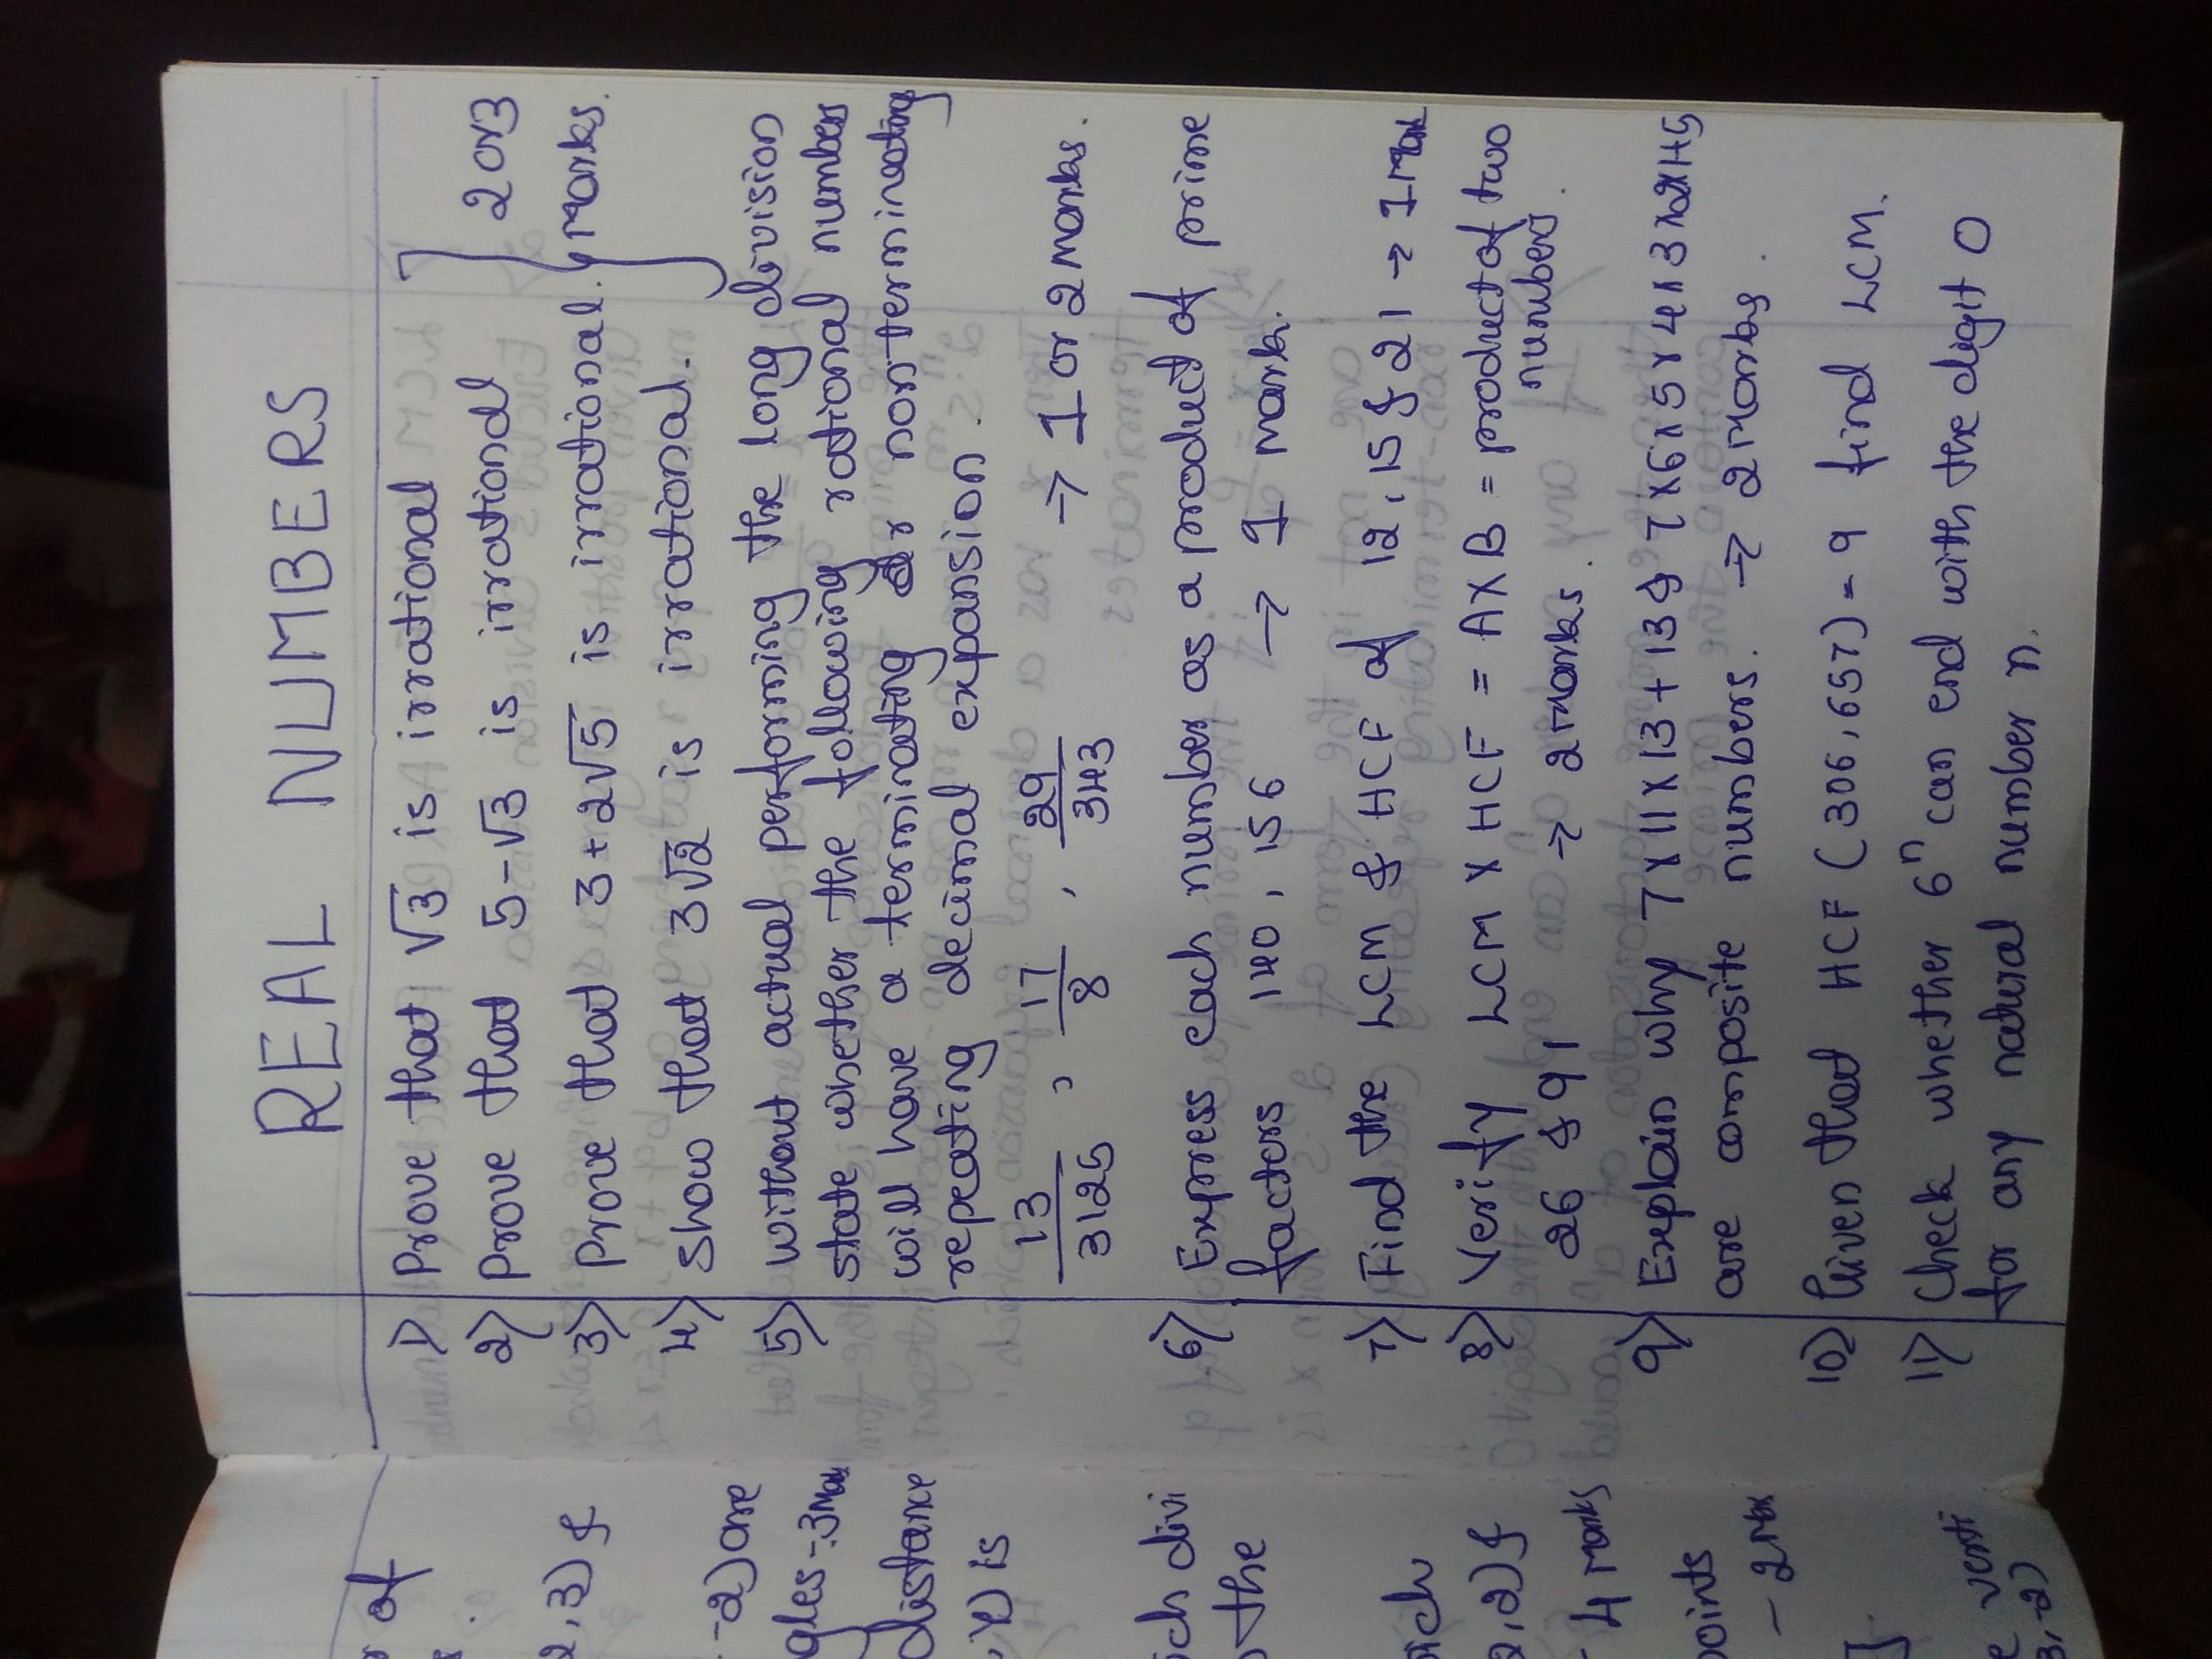 REAL NUMBERS
1) Prove that √3 is irrational
2) Prove that 5-√3 is irrational
3) Prove that 3+2√5 is irrational.
4) Show that 3√2 is irrational.
} 2 or 3
marks.
5) without actual performing the long division
state whether the following rational numbers
will have a terminating or non terminating
repeating decimal expansion.
13/3125 , 17/8 , 29/343 → 1 or 2 marks.
6) Express each number as a product of prime
factors 140, 156 → 1 mark.
7) Find the LCM & HCF of 12, 15 & 21 → 1 mark
8) Verify LCM X HCF = A X B = product of two
numbers.
26 & 91 → 2 marks.
9) Explain why 7 X 11 X 13 + 13 & 7 X 6 X 5 X 4 X 3 X 2 X 1 + 5
are composite numbers. → 2 marks.
10) Given that HCF (306, 657) = 9 find LCM.
11) Check whether 6ⁿ can end with the digit 0
for any natural number n.
of
2,3) &
-2) are
gles -3 Mar
distance
,Y) is
ich divi
the
ich
2,2) &
- 4 marks
points
- 2 Mar
e verti
3,-2)